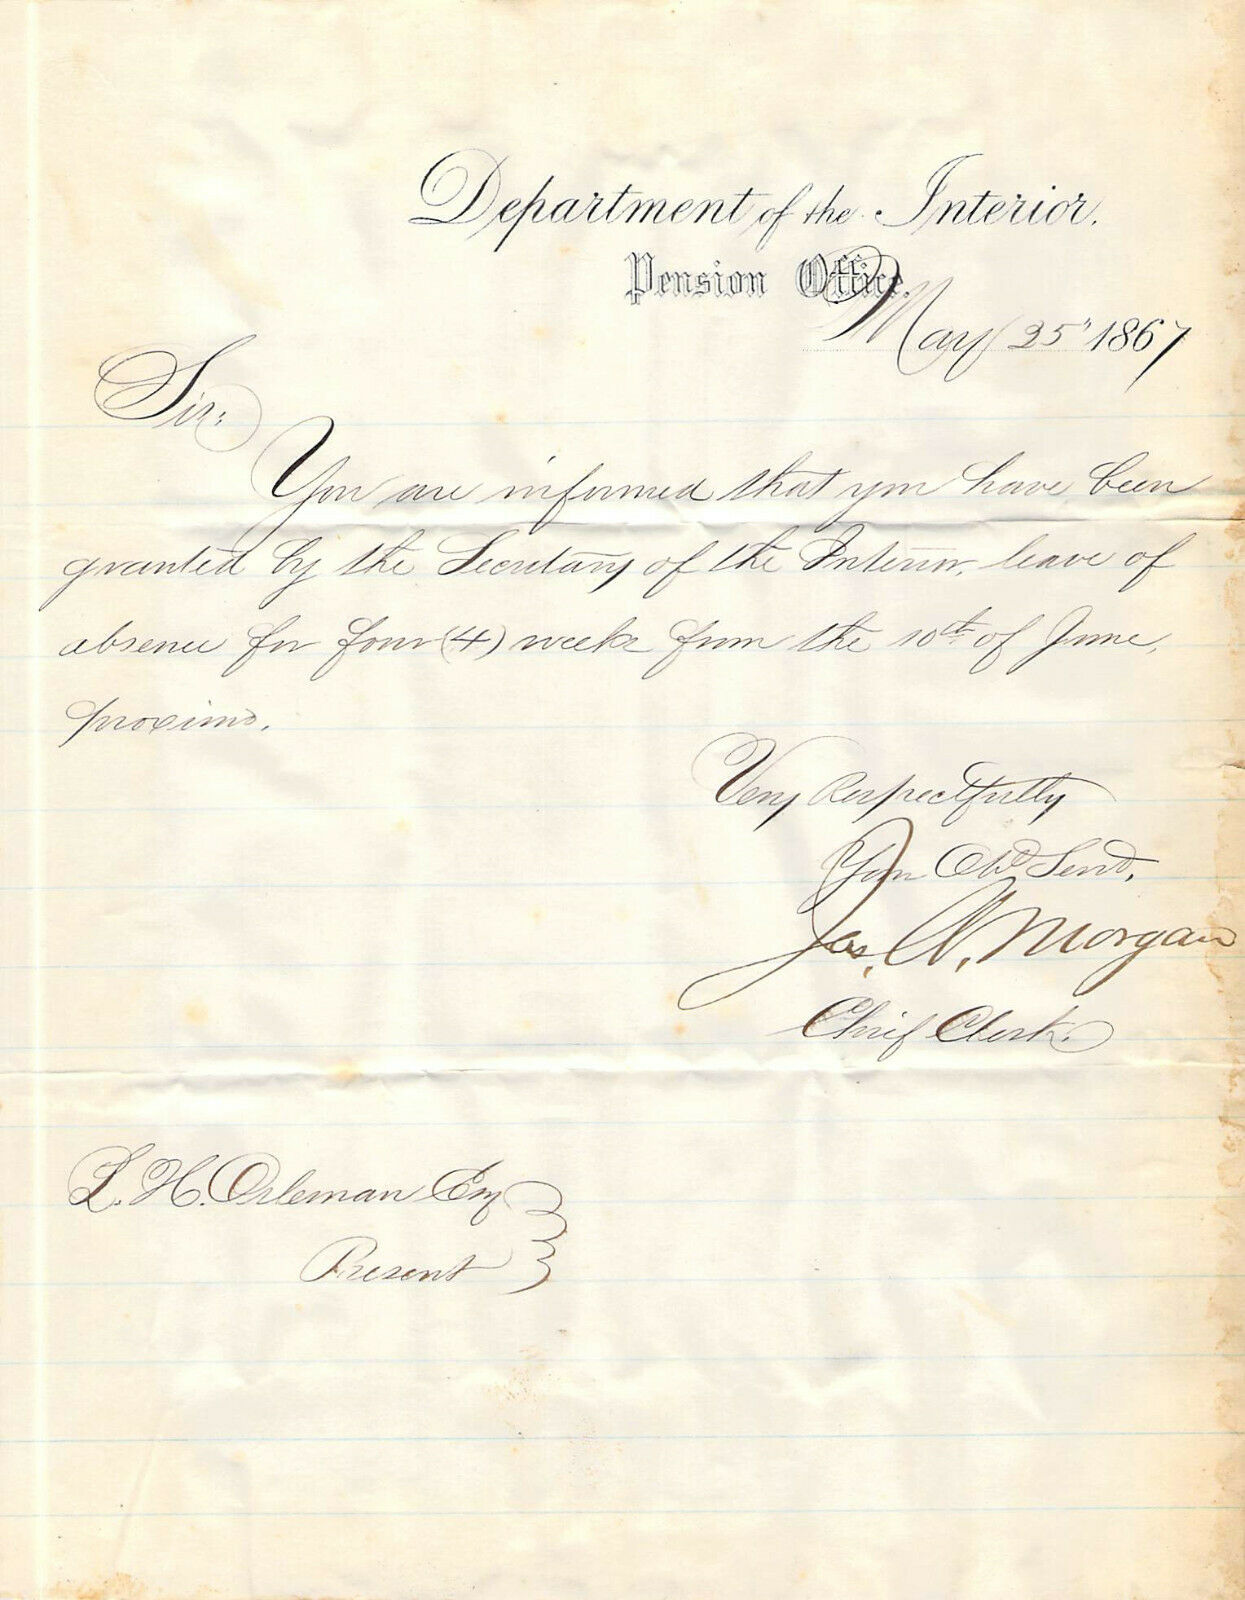 Department of the Interior.
Pension Office.
May 25" 1867
Sir:
You are informed that you have been
granted by the Secretary of the Interior, leave of
absence for four (4) weeks from the 10th of June,
proximo.
Very Respectfully
Your Obt Servt,
Jas. W. Morgan
Chief Clerk.
L. H. Orleman Esq
Present